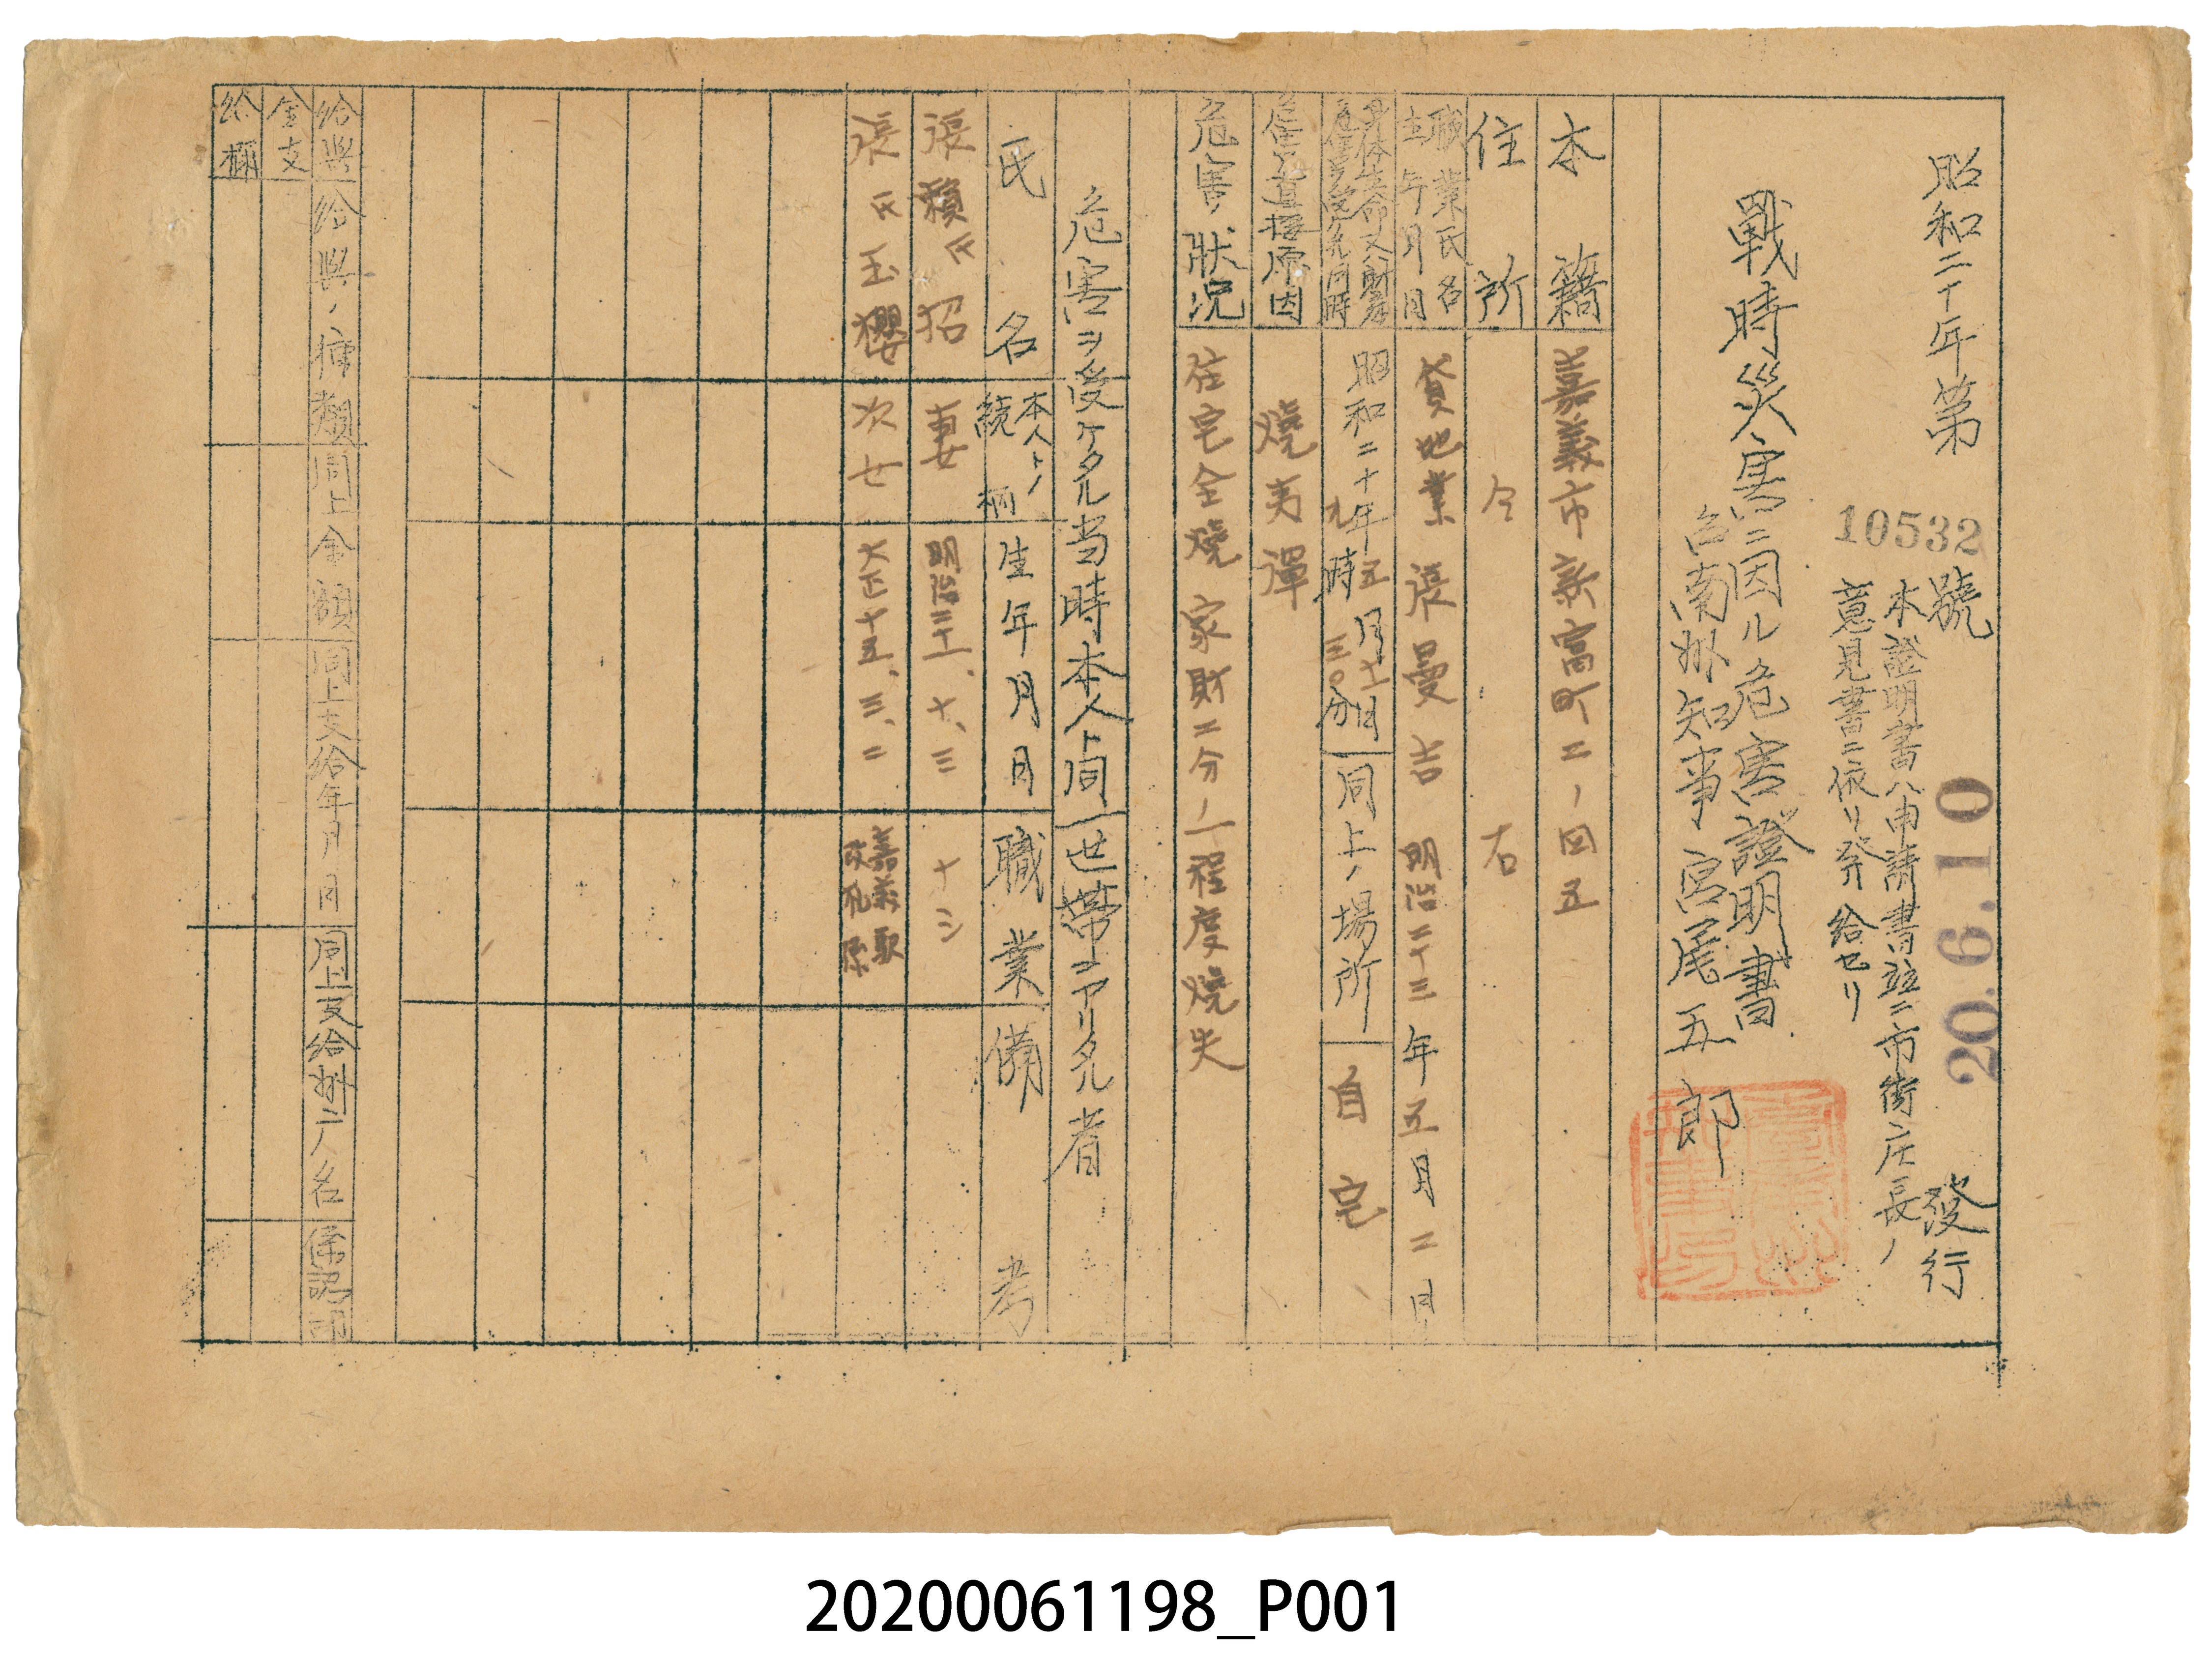 昭和二十年第10532號 發行
20.6.10
本證明書ハ申請書竝ニ市街庄長ノ
意見書ニ依リ発給セリ
戰時災害ニ因ル危害證明書
台南州知事宮尾五郎
本籍 嘉義市新富町二ノ四五
住所 仝右
職業氏名 生年月日 貸地業 張曼吉 明治二十三年五月二日
身体生命又ハ財産ニ危害ヲ受ケタル日時 昭和二十年五月十七日九時三〇分 同上ノ場所 自宅
危害ノ直接原因 燒夷彈
危害ノ狀況 住宅全燒 家財二分ノ一程度燒失
危害ヲ受ケタル当時本人ト同一世帶ニアリタル者
氏名 本人トノ續柄 生年月日 職業 備考
張賴氏招 妻
張氏玉櫻 次女 大正十五、三、二
給與 給與ノ種類 同上金額 同上支給年月日 同上支給州庁名 係認印
金支
給欄
20200061198_P001